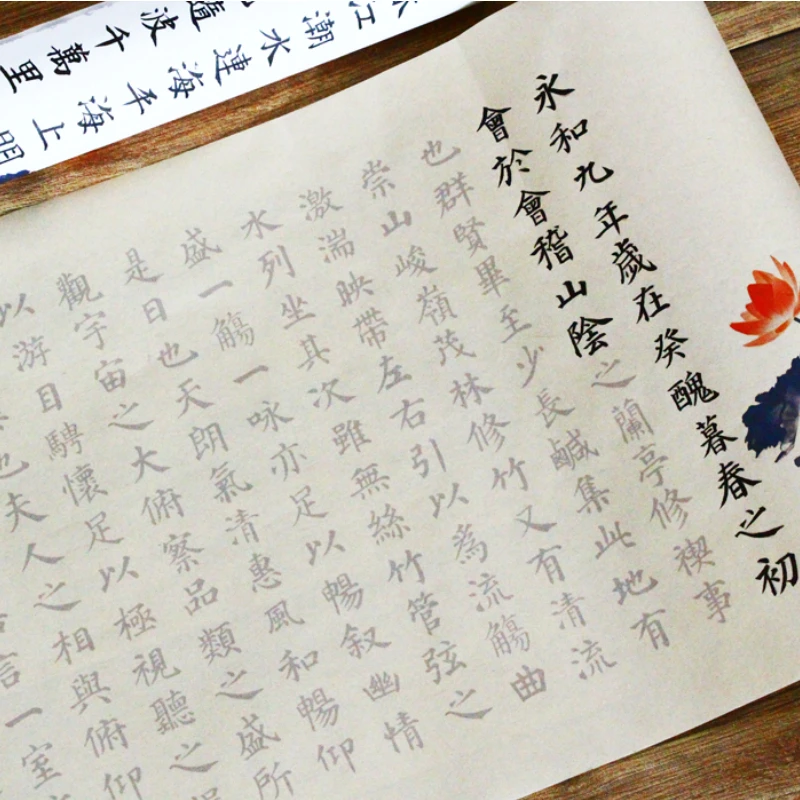 江潮水連海平海上明
隨波千萬里
永和九年歲在癸醜暮春之初
會於會稽山陰之蘭亭修禊事
也群賢畢至少長鹹集此地有
崇山峻嶺茂林修竹又有清流
激湍映帶左右引以為流觴曲
水列坐其次雖無絲竹管弦之
盛一觴一咏亦足以暢叙幽情
是日也天朗氣清惠風和暢仰
觀宇宙之大俯察品類之盛所
以游目騁懷足以極視聽之
也夫人之相與俯仰
言一室